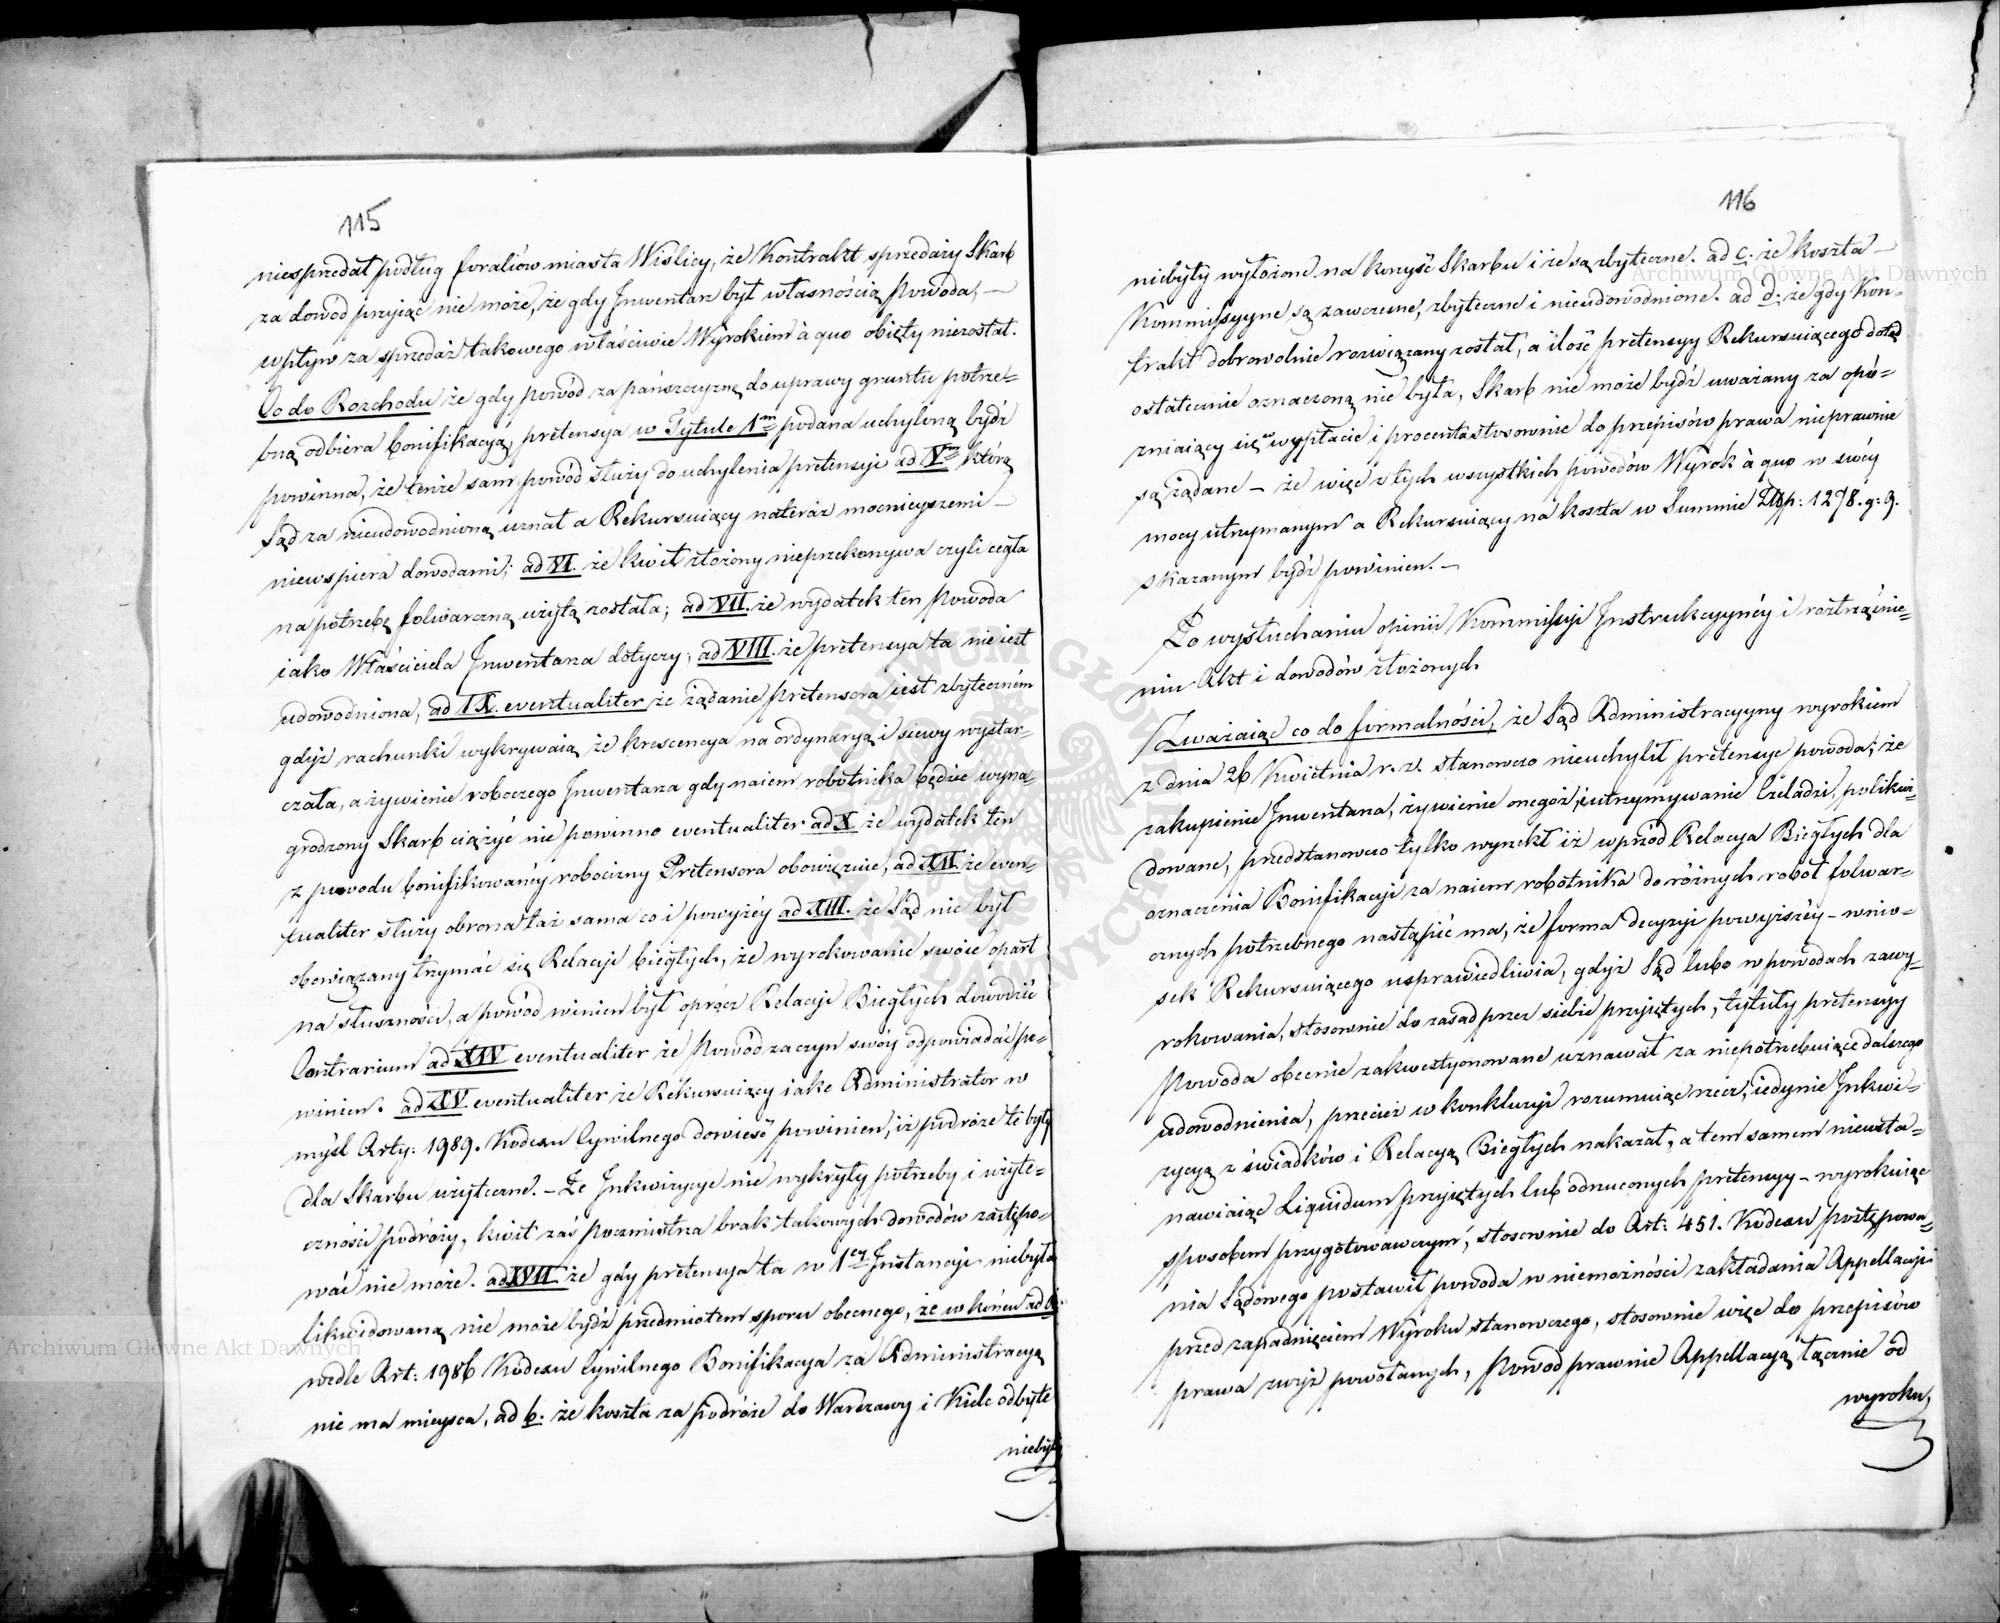 115
niesprzedał podług foraliów miasta Wiślicy, że Kontrakt sprzedaży Skarb
za dowod przyiąć nie może, że gdy Inwentarz był własnością Powoda, —
wpływ za sprzedaż takowego właściwie Wyrokiem à quo obięty niezostał.
Co do Rozchodu że gdy powód za pańszczyznę do uprawy gruntu potrze=
bną odbiera bonifikacyą, pretensya w Tytule 1m podana uchyloną bydź
powinna, że tenże sam powód służy do uchylenia pretensyi ad Vm którą
Sąd za nieudowodnioną uznał a Rekursuiący nateraz mocnieyszemi —
niewspiera dowodami; ad VI. że kwit złożony nieprzekonywa czyli cegła
na potrzebę folwarczną użytą została; ad VII. że wydatek ten Powoda
iako Właściciela Inwentarza dotyczy; ad VIII. że pretensya ta nie iest
udowodniona, ad IX. eventualiter że żądanie pretensora iest zbytecznem
gdyż rachunki wykrywaią że krescencya na ordynaryą i siewy wystar=
czała, a żywienie roboczego Inwentarza gdy naiem robotnika będzie wyna=
grodzony Skarb ciążyć nie powinno eventualiter ad X że wydatek ten
z powodu bonifikowanéy robocizny Pretensora obowięzuie, ad XII. że even=
tualiter służy obrona taż sama co i powyżéy ad XIII. że Sąd nie był
obowiązany trzymać się Relacyi biegłych, że wyrokowanie swoie oparł
na słuszności, a powód winien był oprócz Relacyi Biegłych dowodzić
Contrarium ad XIV eventualiter że Powód za czyn swóy odpowiadać po=
winien. ad XV. eventualiter że Rekursuiący iako Administrator w
myśl Arty: 1989. Kodexu Cywilnego dowieść powinien, iż podróże te były
dla Skarbu użyteczne. — Że Inkwizycye nie wykryły potrzeby i użyte=
czności podróży, kwit zaś poczmistrza brak takowych dowodów zastępo=
wać nie może. ad XVII. że gdy pretensya ta w 1ey Instancyi niebyła
likwidowaną nie może bydź przedmiotem sporu obecnego, że w końcu ad a.
wedle Art: 1986 Kodexu Cywilnego Bonifikacya za Administracyą
nie ma mieysca, ad b. że koszta za podróże do Warszawy i Kielc odbyte
niebyły
116
niebyły wyłożone na korzyść Skarbu i że są zbyteczne. ad c. że koszta —
Kommissyyne, są zawczesne, zbyteczne i nieudowodnione. ad d. że gdy Kon=
trakt dobrowolnie rozwiązany został, a ilość pretensyy Rekursuiącego dotąd
ostatecznie oznaczoną nie była, Skarb nie może bydź uważany za opó=
zniaiący się w wypłacie i procenta stosownie do przepisów prawa nieprawnie
są żądane — że więc z tych wszystkich powodów Wyrok à quo w swéy
mocy utrzymanym a Rekursuiący na koszta w Summie Złłp: 1278. g: 9.
skazanym bydź powinien. —
Po wysłuchaniu opinii Kommissyi Instrukcyynéy i roztrząśnie=
niu Akt i dowodów złożonych
Zważaiąc co do formalności, że Sąd Administracyyny wyrokiem
z dnia 26 Kwietnia r. z. stanowczo nieuchylił pretensye powoda, że
zakupienie Inwentarza, żywienie onegoż, i utrzymywanie Czeladzi, polikwi=
dowane, przedstanowczo tylko wyrzekł iż wprzód Relacya Biegłych dla
oznaczenia Bonifikacyi za naiem robotnika do różnych robót folwar=
cznych potrzebnego nastąpić ma, że forma decyzyi powyższéy — wnio=
sek Rekursuiącego usprawiedliwia, gdyż Sąd lubo w powodach zawy=
rokowania, stosownie do zasad przez siebie przyiętych, tytuły pretensyy
Powoda obecnie zakwestyonowane uznawał za niepotrzebuiące dalszego
udowodnienia, przecież w konkluzyi rozumuiąc rzecz, iedynie Inkwi=
zycyą z świadków i Relacyą Biegłych nakazał, a tem samem nieusta=
nawiaiąc Liquidum przyiętych lub odrzuconych pretensyy — wyrokuiąc
sposobem przygotowawczym, stosownie do Art: 451. Kodexu postępowa=
nia Sądowego postawił powoda w niemożności zakładania Appellacyi
przed zapadnięciem Wyroku stanowczego, stosownie więc do przepisów
prawa zwyż powołanych, Powód prawnie Appellacyą łącznie od
wyroku,
Archiwum Główne Akt Dawnych
Archiwum Główne Akt Dawnych